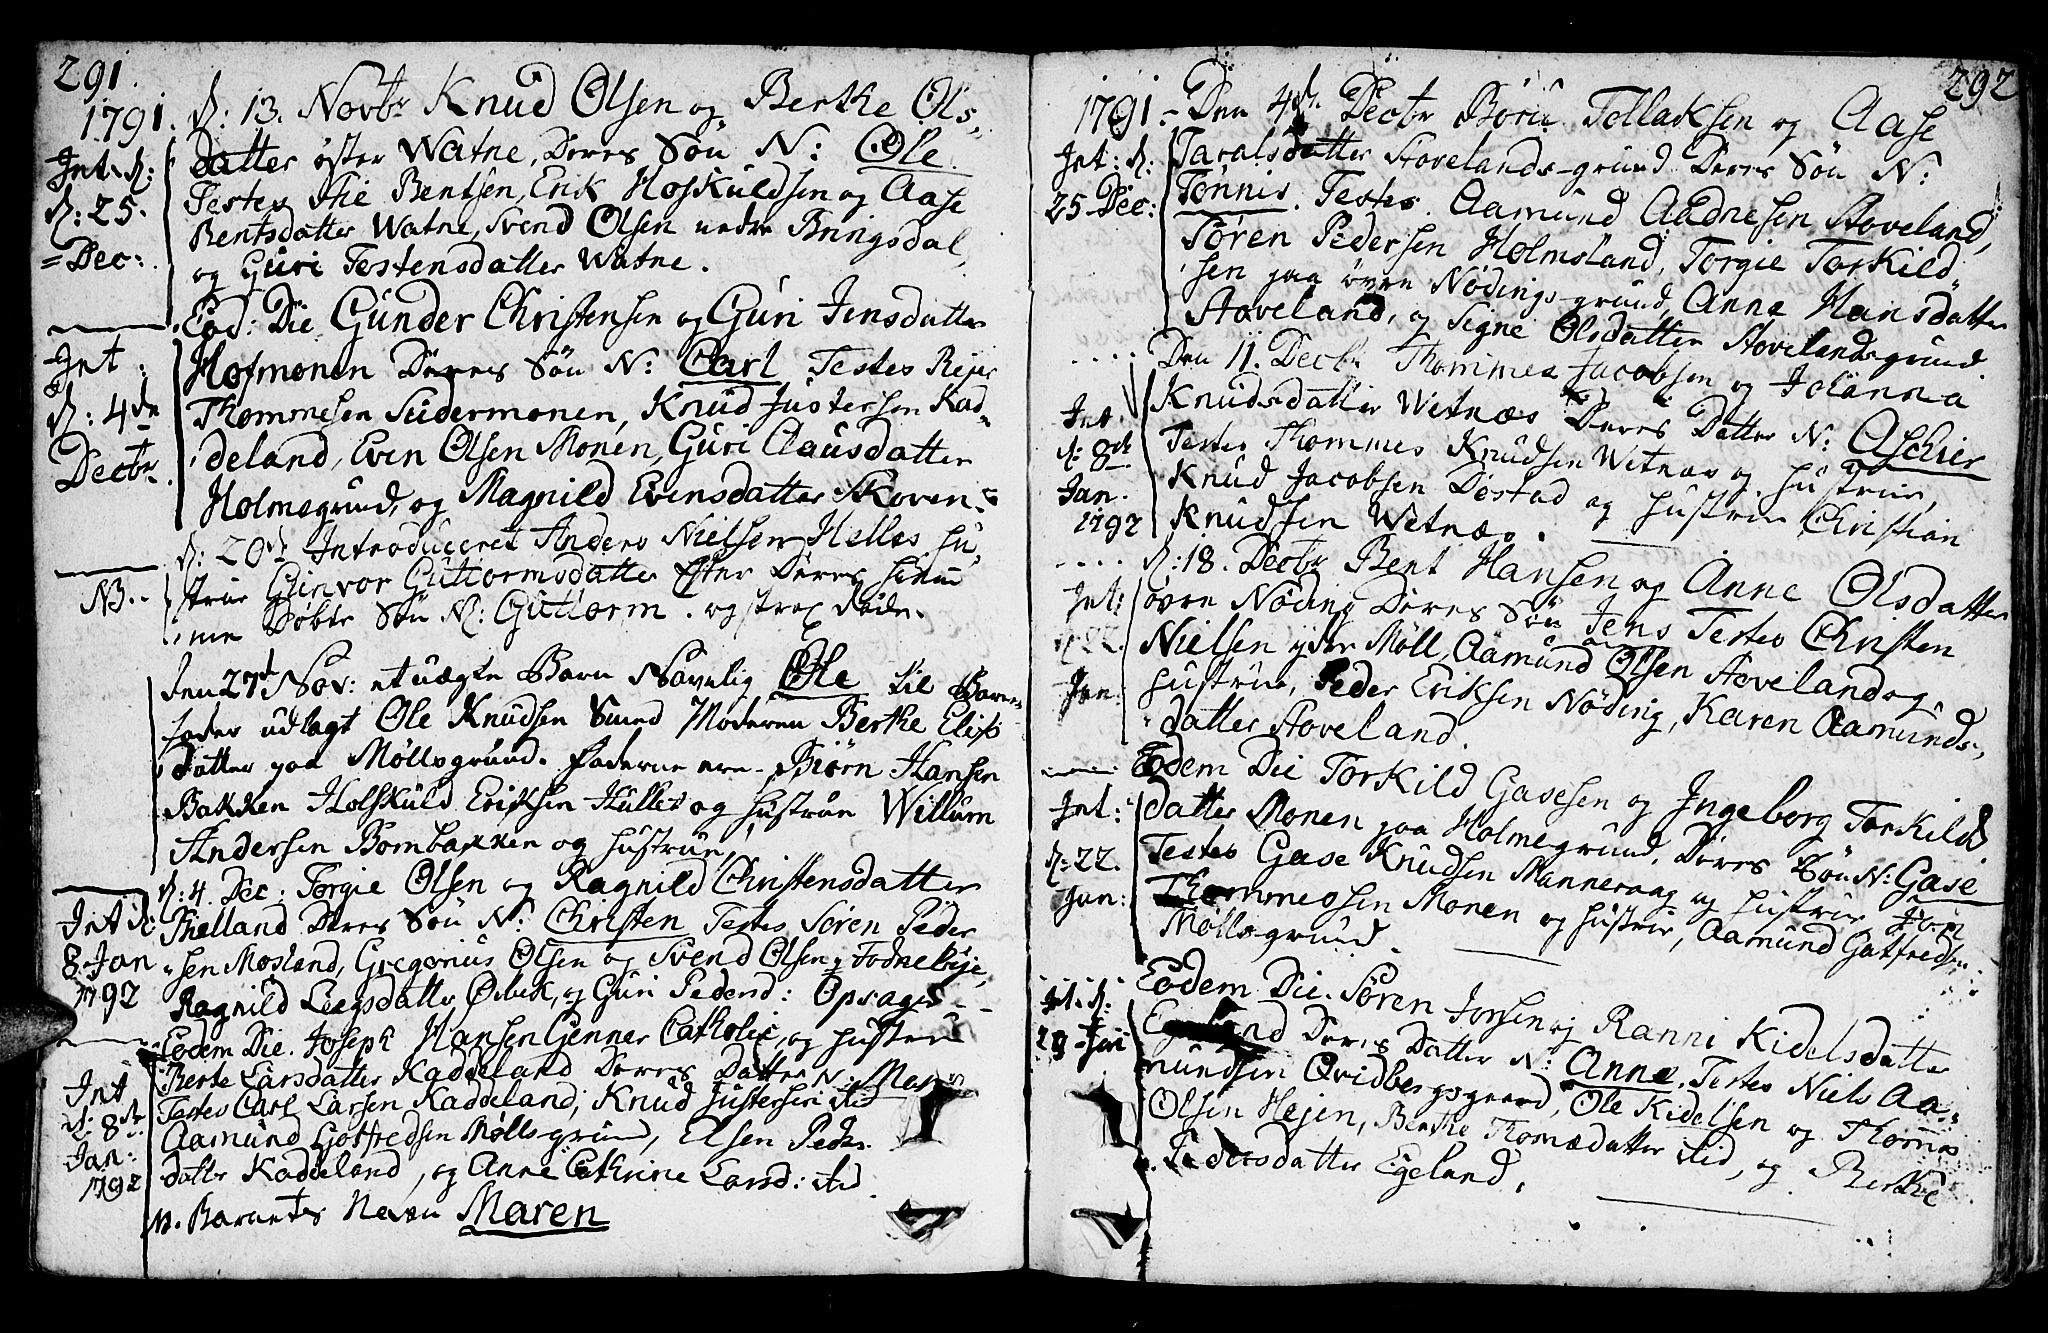 291.
1791.
d: 13. Novbr Knud Olsen og Berthe Ols„
datter öster Watne, Deres Sön N: Ole.
Testes Thie Bentsen, Erik Hoskuldsen og Aase
Bentsdatter Watne, Svend Olsen nedre Bringsdal,
og Guri Testensdatter Watne.
Int. d:
d: 25.
=Dec:
Eod: Die Gunder Christensen og Guri Jensdatter
Hofmonen Deres Sön N: Carl Testes Rejer
Thommesen Sudermonen, Knud Justersen Kad„
deland, Even Olsen Monen, Guri Clausdatter
Holmegrund, og Magnild Evensdatter Skoven.
Int:
d: 4de
Decbr
d: 20de Introduceret Anders Nielsen Helles hu„
strue Gunvor Guttormsdatter Efter Deres hiem„
me Döbte Sön N: Guttorm. og strax döde.
NB.
Den 27de Nov: et uægte Barn Navnlig Ole til Barne„
fader udlagt Ole Knudsen Moderen Berthe Elis
Datter paa Mollsgrund. Fadderne ere Biörn Hansen
Bakken Holskuld Eriksen Hullet og hustrue Willum
Andersen Bombakken og hustrue,
d: 4. Dec: Torgie Olsen og Ragnild Christensdatter
Thelland Deres Sön N: Christen Testes Sören Peder„
sen Mosland, Gregorius Olsen og Svend Olsen Fodnebye,
Ragnild Leegsdatter og Guri Pedersd: Opsager
Int d:
8. Jan
1792
Eodem Die. Joseph Hansen Genner Catholic, og hustrue
Berte Larsdatter Kaddeland Deres Datter N.
Testes Carl Larsen Kaddeland, Knud Justersen ibid
Aamund Gotfredsen Mollsgrund, Elsen Peders
datter Kaddeland, og Anne Cathrine Larsd: ibid
N. Barnets Navn Maren
Int
d: 8de
Jan:
1792
292
1791 - Den 4de Decbr Börü Tellaksen og Aase
Taralsdatter Stovelands-grund Deres Sön N:
Tönnis. Testes Aamund Aadnesen Stoveland,
Sören Pedersen Holmsland, Torgie Torkild„
sen paa övre Nödings-grund, Anne Hansdatter
Stoveland, og Signe Olsdatter Stovelandsgrund
Int: d:
25 Dec:
Den 11. Decbr Thommes Jacobsen og Johanna
Knudsdatter Witnæs Deres Datter N: Aschier
Testes Thommes Knudsen Witnæs og hustrue,
Knud Jacobsen Döstad og hustrue Christian
Knudsen Witnæs.
Int.
d: 8de
Jan.
1792
d: 18. Decbr Bent Hansen og Anne Olsdatter
övre Nöding Deres Sön Jens Testes Christen
Nielsen ydre Möll, Aamund Olsen Stoveland og
hustrue, Peder Eriksen Nöding, Karen Aamunds„
datter Stoveland.
Int:
d 22.
Jan:
Eodem Die Torkild Gasesen og Ingeborg Torkilds
datter Monen paa Holmegrund, Deres Sön N: Gase
Testes Gase Knudsen Mannevaag og hustrue, Jörn
Thommesen Monen og hustrue, Aamund Gotfredsen
Mollsgrund.
Int:
d: 22.
Jan:
Eodem Die. Sören Jorsen og Ranni Kidelsdatter
Egeland Deres Datter N: Anne, Testes Niels Aa„
mundsen Qvidbergsgaard, Ole Kidelsen og Thomas
Olsen Hejen, Berthe Thomædatter ibid, og Berthe
Pedersdatter Egeland.
Int. d:
29 Jan